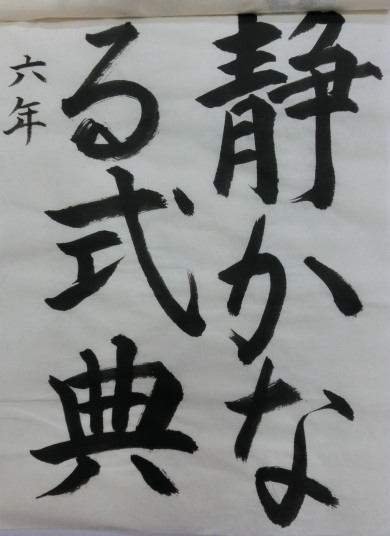 静かな
る式典
六年